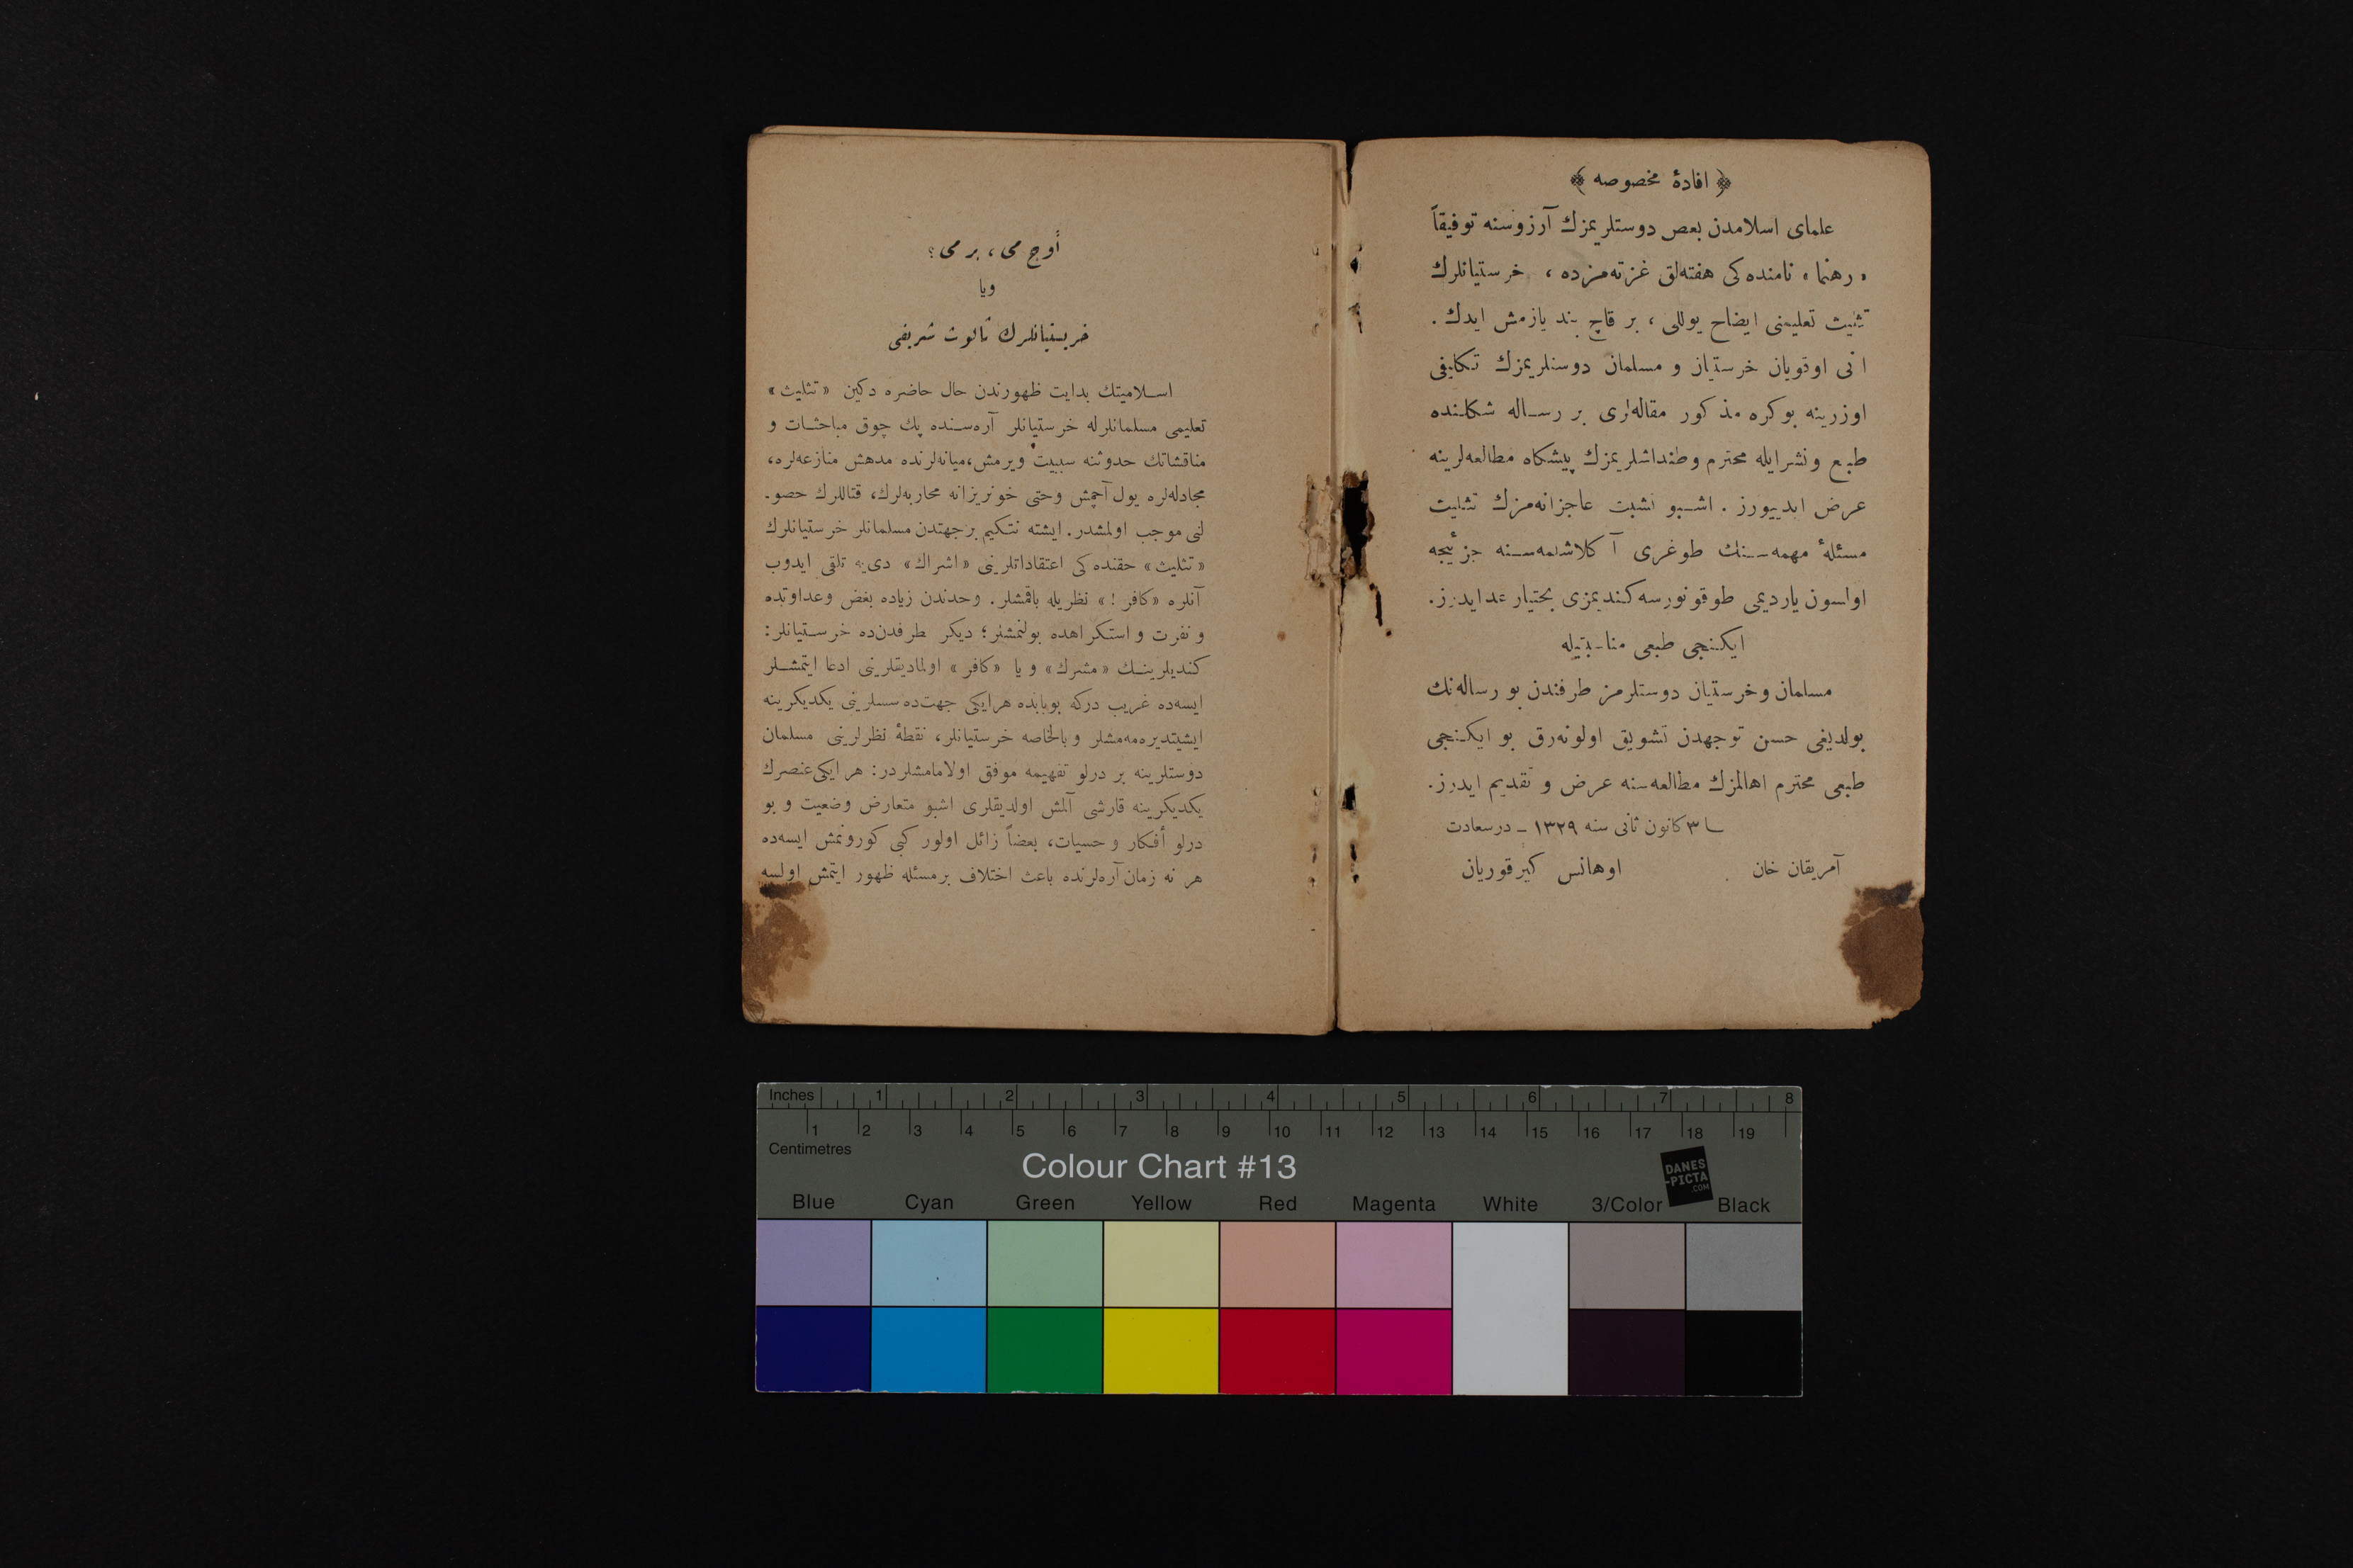 ﴿ افادهٔ مخصوصه ﴾
علمای اسلامدن بعض دوستلریمزك آرزوسنه توفیقاً
« رهنما » نامنده کی هفته‌لق غزته‌مزده ، خرستیانلرك
تثلیث تعلیمنی ایضاح یوللی ، بر قاچ بند یازمش ایدك .
انی اوقویان خرستیان و مسلمان دوستلریمزك تکلیفی
اوزرینه بوکره مذکور مقاله‌لری بر رساله شکلنده
طبع ونشرایله محترم وطنداشلریمزك پیشکاه مطالعه‌لرینه
عرض ایدییورز . اشبو تشبث عاجزانه‌مزك تثلیث
مسئلهٔ مهمه‌سنك طوغری آکلاشلمه‌سنه جزئیجه
اولسون یاردیمی طوقونورسه کندیمزی بختیار عد ایدرز.
ایکنجی طبعی مناسبتیله
مسلمان وخرستیان دوستلرمز طرفندن بو رساله‌نك
بولدیغی حسن توجهدن تشویق اولونه‌رق بو ایکنجی
طبعی محترم اهالمزك مطالعه‌سنه عرض و تقدیم ایدرز.
٣ کانون ثانی سنه ١٣٢٩ ــ درسعادت
آمریقان خان اوهانس کیرقوریان
أوچ می ، بر می ؟
ویا
خرستیانلرك ثالوث شریفی
اسلامیتك بدایت ظهورندن حال حاضره دکین « تثلیث »
تعلیمی مسلمانلرله خرستیانلر آره‌سنده پك چوق مباحثات و
مناقشاتك حدوثنه سببیت ویرمش،میانه‌لرنده مدهش منازعه‌لره،
مجادله‌لره یول آچمش وحتی خونریزانه محاربه‌لرك، قتاللرك حصو-
لنی موجب اولمشدر. ایشته نتکیم برجهتدن مسلمانلر خرستیانلرك
« تثلیث » حقنده کی اعتقاداتلرینی « اشراك » دیه تلقی ایدوب
آنلره «کافر ! » نظریله باقمشلر. وحدندن زیاده بغض وعداوتده
و نفرت و استکراهده بولنمشلر؛ دیکر طرفدن‌ده خرستیانلر:
کندیلرینك « مشرك » و یا «کافر » اولمادیقلرینی ادعا ایتمشلر
ایسه‌ده غریب درکه بوبابده هرایکی جهت‌ده سسلرینی یکدیکرینه
ایشیتدیره‌مه‌مشلر و بالخاصه خرستیانلر، نقطهٔ نظرلرینی مسلمان
دوستلرینه بر درلو تفهیمه موفق اولامامشلردر: هر ایکی عنصرك
یکدیکرینه قارشی آلمش اولدیقلری اشبو متعارض وضعیت و بو
درلو أفکار و حسیات، بعضاً زائل اولور کبی کورونمش ایسه‌ده
هر نه زمان آره‌لرنده باعث اختلاف برمسئله ظهور ایتمش اولسه
Inches 1 2 3 4 5 6 7 8
1 2 3 4 5 6 7 8 9 10 11 12 13 14 15 16 17 18 19
Centimetres
Colour Chart #13
DANES
-PICTA
.COM
Blue Cyan Green Yellow Red Magenta White 3/Color Black